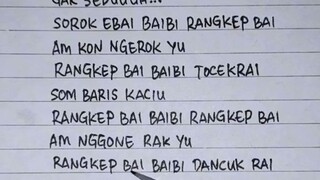 SOROK EBAI BAIBI RANGKEP BAI
AM KON NGEROK YU
RANGKEP BAI BAIBI TOCEKRAI
SOM BARIS KACIU
RANGKEP BAI BAIBI RANGKEP BAI
AM NGGONE RAK YU
RANGKEP BAI BAIBI DANCUK RAI